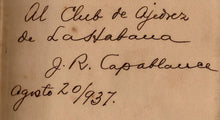 Al Club de Ajidrez
de La Habana
J. R. Capablanca
agosto 20/937.